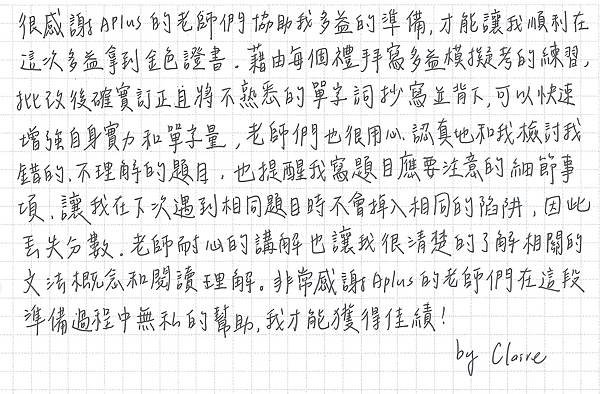 很感謝 Aplus 的老師們協助我多益的準備,才能讓我順利在
這次多益拿到金色證書.藉由每個禮拜寫多益模擬考的練習,
批改後確實訂正且將不熟悉的單字詞抄寫並背下,可以快速
增強自身實力和單字量,老師們也很用心認真地和我檢討我
錯的、不理解的題目,也提醒我寫題目應要注意的細節事
項、讓我在下次遇到相同題目時不會掉入相同的陷阱,因此
丟失分數.老師耐心的講解也讓我很清楚的了解相關的
文法概念和閱讀理解。非常感謝 Aplus 的老師們在這段
準備過程中無私的幫助,我才能獲得佳績!
by Claire